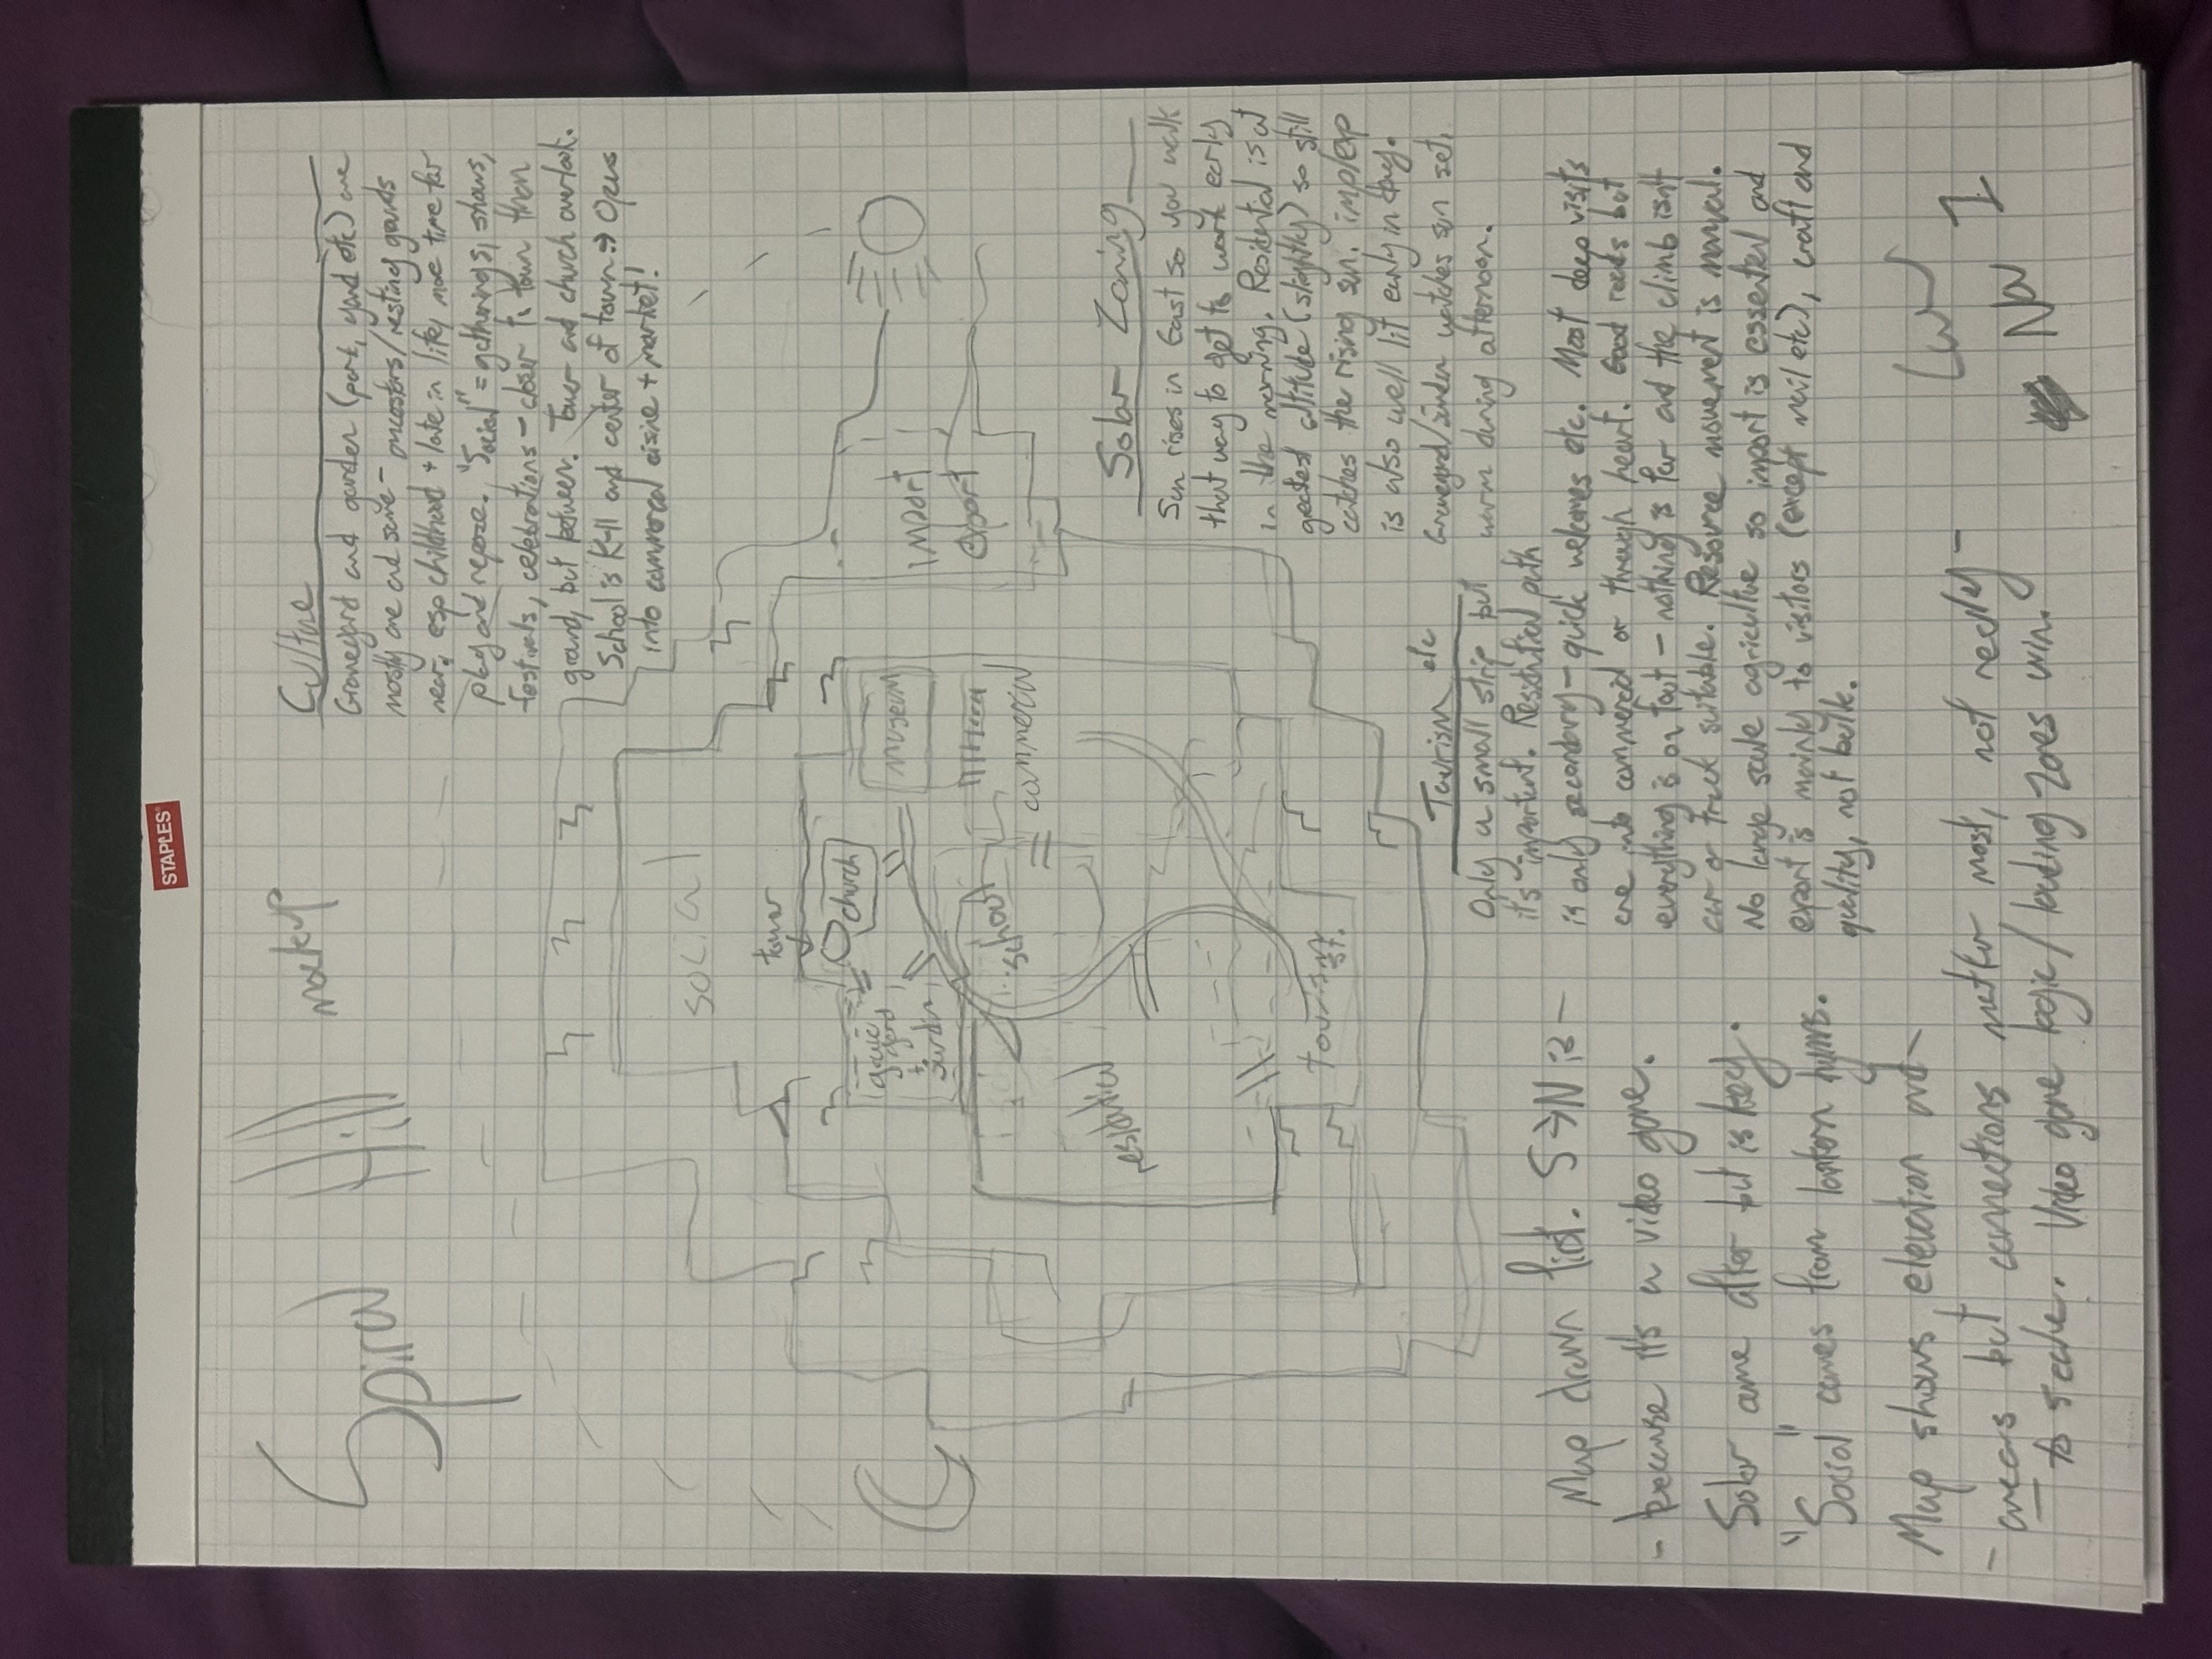 STAPLES
Spiral Hill mockup
Culture
Graveyard and garden (park, yard etc) are
mostly one and same - ancestors/resting gaurds
near, esp childhood + late in life, more time for
play and repose. "Social" = gatherings, shows,
festivals, celebrations - closer to town than
grand, but between. Tower and church overlook.
School is K-11 and center of town => Opens
into commercial aisine + market!
social
tower
church
grave
yard
+
garden
museum
school
commercial
import
export
residential
tourism
st.
Solar Zoning
Sun rises in East so you walk
that way to get to work early
in the morning. Residential is at
greatest altitude (slightly) so still
catches the rising sun. imp/exp
is also well lit early in day.
Graveyard/garden watches sun set,
warm during afternoon.
Tourism etc
Only a small strip but
it's important. Residential path
is only secondary - quick welcomes etc. Most deep visits
are into commercial or through heart. Good roads but
everything is on foot - nothing is far and the climb isn't
car or truck suitable. Resource movement is manual.
No large scale agriculture so import is essential and
export is mainly to visitors (except mail etc), craft and
quality, not bulk.
Map drawn first. S->N is -
- because it's a video game.
Solar came after but is key.
"Social" comes from lantern hymns.
Map shows elevation and
- areas but connections matter most, not really -
- to scale. Video game logic/loading zones win.
LW 1
NW